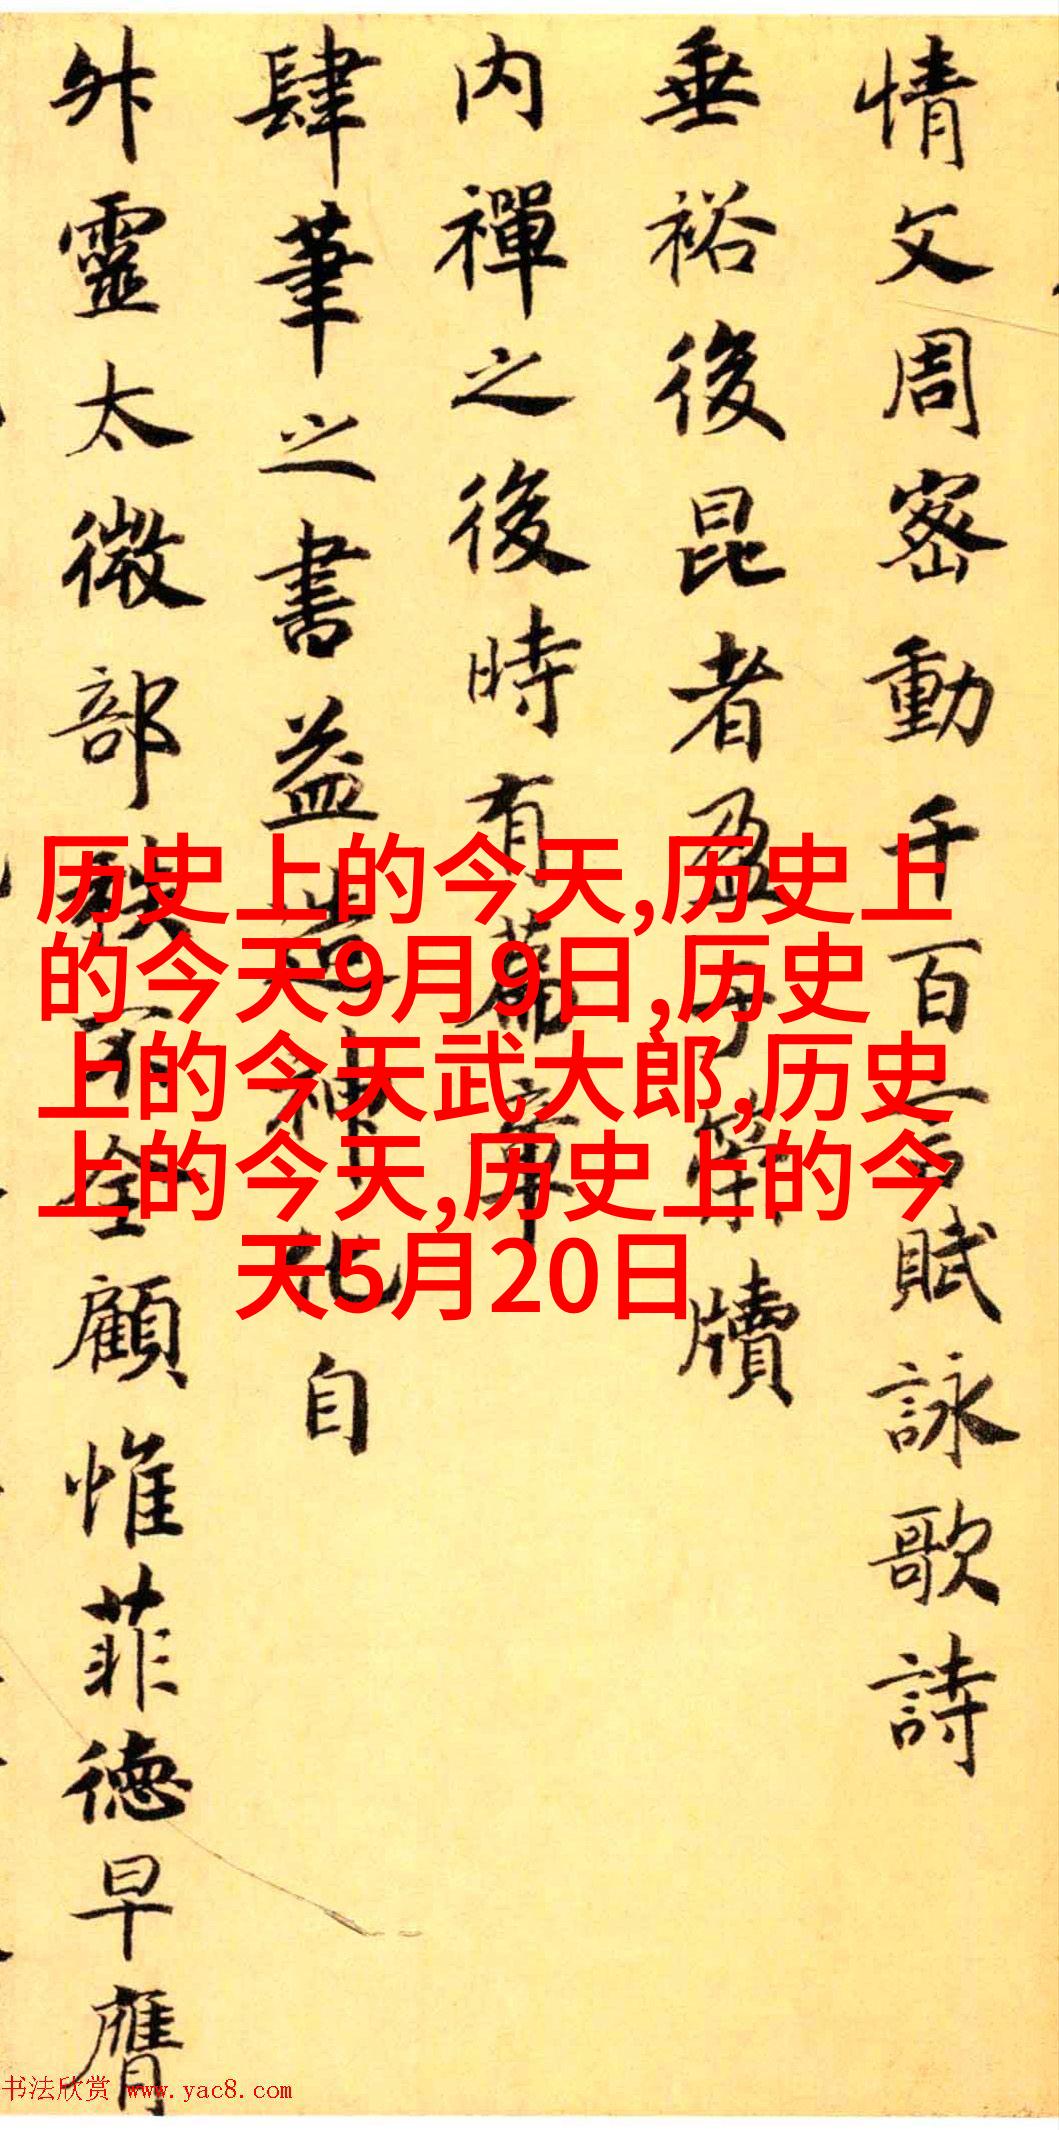 情文周密動千百言賦詠歌詩
垂裕後昆者盈于牘
内禪之後時有篇章
肆筆之書益造神化自
靈太微部秩全顧惟菲德早膺
历史上的今天,历史上
的今天9月9日,历史
上的今天武大郎,历史
上的今天,历史上的今
天5月20日
书法欣赏 www.yac8.com